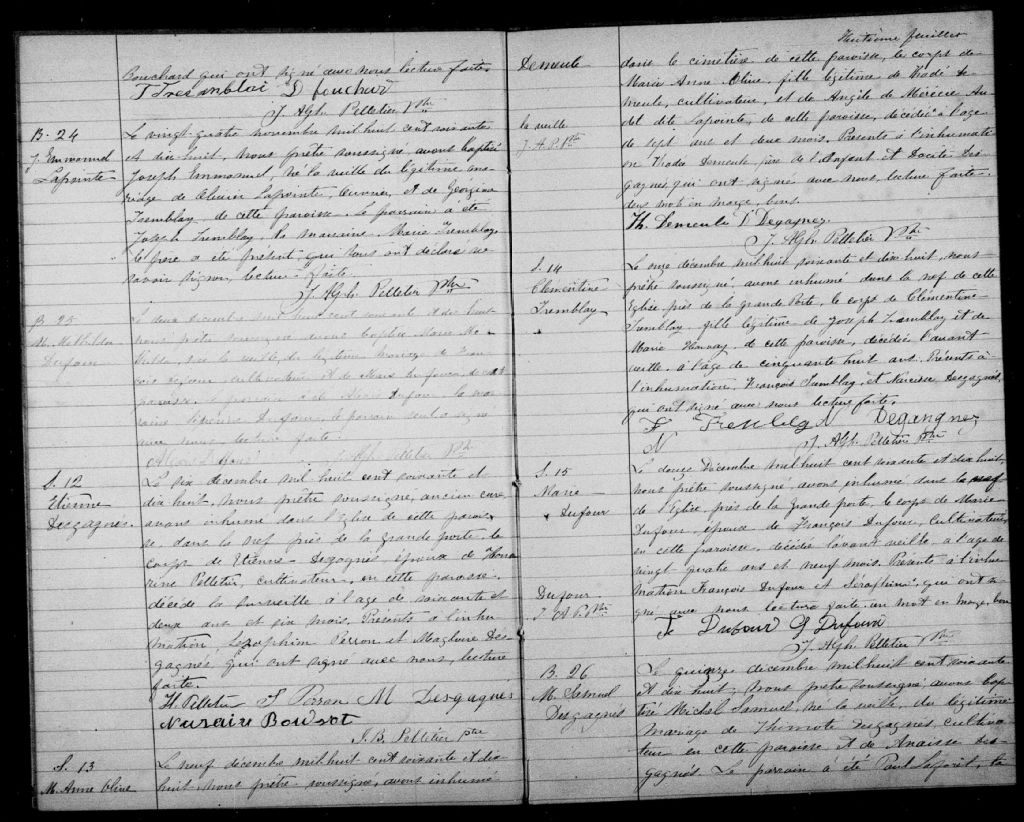 Bouchard qui ont signé avec nous lecture faite.
T Tremblai D Bouchar
J. Alph. Pelletier Ptre
B. 24
J. Emmanuel
Lapointe
Le vingt quatre novembre mil huit cent soixante
et dix-huit, nous prêtre soussigné avons baptisé
Joseph Emmanuel, né la veille du légitime ma-
riage de Olivier Lapointe, ouvrier, et de Georgina
Tremblay de cette paroisse. Le parrain a été
Joseph Tremblay, la marraine, Marie Tremblay,
le père a été présent, qui tous ont déclaré ne
savoir signer, lecture faite.
J. Alph. Pelletier Ptre
B. 25
Dufour
Le deux décembre mil huit cent soixante et dix huit
nous prêtre soussigné avons baptisé Marie Ma-
née la veille du légitime mariage de Fran-
çois Dufour cultivateur et de Marie Dufour de cette
paroisse. parrain a été Dufour la mar-
raine Dufour, le parrain seul a signé
avec nous lecture faite.
J. Alph. Pelletier Ptr
S. 12
Etienne
Desgagnés.
Le six décembre mil huit cent soixante et
dix huit, nous prêtre soussigné, ancien curé,
avons inhumé dans l'Eglise de cette parois-
se, dans la nef près de la grande porte, le
corps de Etienne Desgagnés, époux de Hono-
rine Pelletier, cultivateur, en cette paroisse.
décédé la surveille à l'age de soixante et
deux ans et six mois. Présents à l'inhu-
mation, Seraphim Perron et Magloire Des-
gagnés, qui ont signé avec nous, lecture
faite.
H. Pelletier S Perron M Desgagnés
J. B. Pelletier Ptre
S. 13
M. Anne Olive
Le neuf décembre mil huit cent soixante et dix
huit, nous prêtre soussigné, avons inhumé
Huitième feuillet
Demeule
la veille
J. A. P. Ptr.
dans le cimetière de cette paroisse, le corps de
Marie Anne Olive, fille légitime de Thadé De-
meule, cultivateur, et de Angèle de Mérécie Au-
det dite Lapointe, de cette paroisse, décédée à l'age
de sept ans et deux mois. Présents à l'inhumati-
on Thadée Demeule père de l'enfant et Docité Des-
gagnés, qui ont signé avec nous, lecture faite.
deux mots en marge, bons.
Th. Demeule D Degagnez
J. Alph. Pelletier Ptre
S. 14
Clémentine
Tremblay
Le onze décembre mil huit soixante et dix huit, nous
prêtre soussigné, avons inhumé dans la nef de cette
Eglise près de la grande Porte, le corps de Clémentine
Tremblay fille légitime de Joseph Tremblay et de
Marie Harvay de cette paroisse, décédée l'avant
veille, à l'age de cinquante huit ans. Présents à
l'inhumation, François Tremblay, et Narcisse Desgagnés,
qui ont signé avec nous lecture faite.
F Tremblay N Degangnez
N
J. Alph. Pelletier Ptre
S. 15
Marie
Dufour
Dufour.
J. A P. Ptre
Le douze Décembre mil huit cent soixante et dix huit,
nous prêtre soussigné avons inhumé dans la nef
de l'Eglise, près de la grande porte, le corps de Marie
Dufour, épouse de François Dufour, cultivateur,
en cette paroisse, décédée l'avant veille, à l'age de
vingt quatre ans et neuf mois. Présents à l'inhu-
mation François Dufour et Séraphim, qui ont si-
gné avec nous lecture faite. un mot en marge, bon
F Dufour S Dufour
J. Alph. Pelletier Ptre
B. 26
M. Samuel
Desgagnés
Le quinze décembre mil huit cent soixante
et dix huit, nous prêtre soussigné avons bap-
tisé Michel Samuel, né la veille, du légitime
mariage de Thimoté Desgagnés, cultiva-
teur en cette paroisse et de Anaisse Des-
gagnés. Le parrain a été Paul Laforêt, la